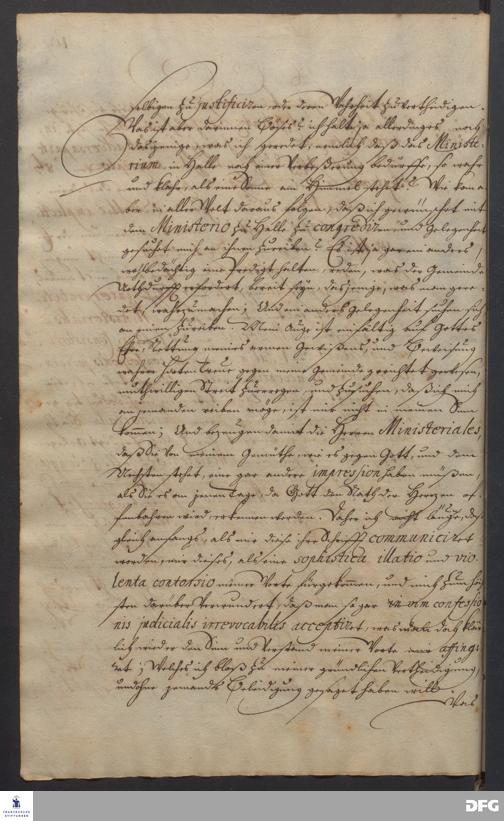 selbigen zu justificiren, oder deren Wahrheit zu vertheidigen.
Was ist aber darinnen Böses? ich halte ja allerdinges noch
dasjenige, was ich geredet, nemlich daß das Ministe-
rium in Halle noch einer Verbeßerung bedürffe, so wahr
und klahr, als eine Sonne am Himmel stehet? Wie kan a-
ber in aller Welt daraus folgen, daß ich gewünschet mit
dem Ministerio zu Halle zu congrediren, und Gelegenheit
gesuchet mich an ihnen zu reiben? Es ist ja gar ein anders,
wohlbedächtig eine Predigt halten, reden, was der Gemeinde
Nothdurfft erfordert, bereit seyn, dasjenige, was man gere-
det, wahr zu machen; Und ein anders Gelegenheit suchen sich
an einem zu reiben. Mein Auge ist einfältig auf Gottes
Ehre, Rettung meines armen Gewißens, und Beweisung
wahrer Hirten Treue gegen meine Gemeinde gerichtet gewesen,
muthwilligen Streit zu erregen, und zu suchen, daß ich mich
an jemanden reiben möge, ist mir nicht in meinen Sinn
kommen; Und bezeugen damit die Herren Ministeriales,
daß Sie von meinem Gemüthe, wie es gegen Gott, und dem
Nechsten stehet, eine gar andere impression haben müßen,
als Sie es an jenem Tage, da Gott den Rath der Hertzen of-
fenbahren wird, erkennen werden. Daher ich nicht läugne, daß
gleich anfangs, als mir diese ihre Schrifft communiciret
worden, mir dieses, als eine sophistica illatio und vio-
lenta contorsio meiner Worte fürgekommen, und mich zum höch-
sten darüber verwundert, daß man so gar in vim confessio-
nis judicialis irrevocabilis acceptiret, was man doch klär-
lich wieder den Sinn und Verstand meiner Worte affingi-
ret; Welches ich bloß zu meiner gründlichen Vertheidigung,
und ohne jemands Beleidigung gesaget haben will.
Was
FRANCKESCHE
STIFTUNGEN
DFG